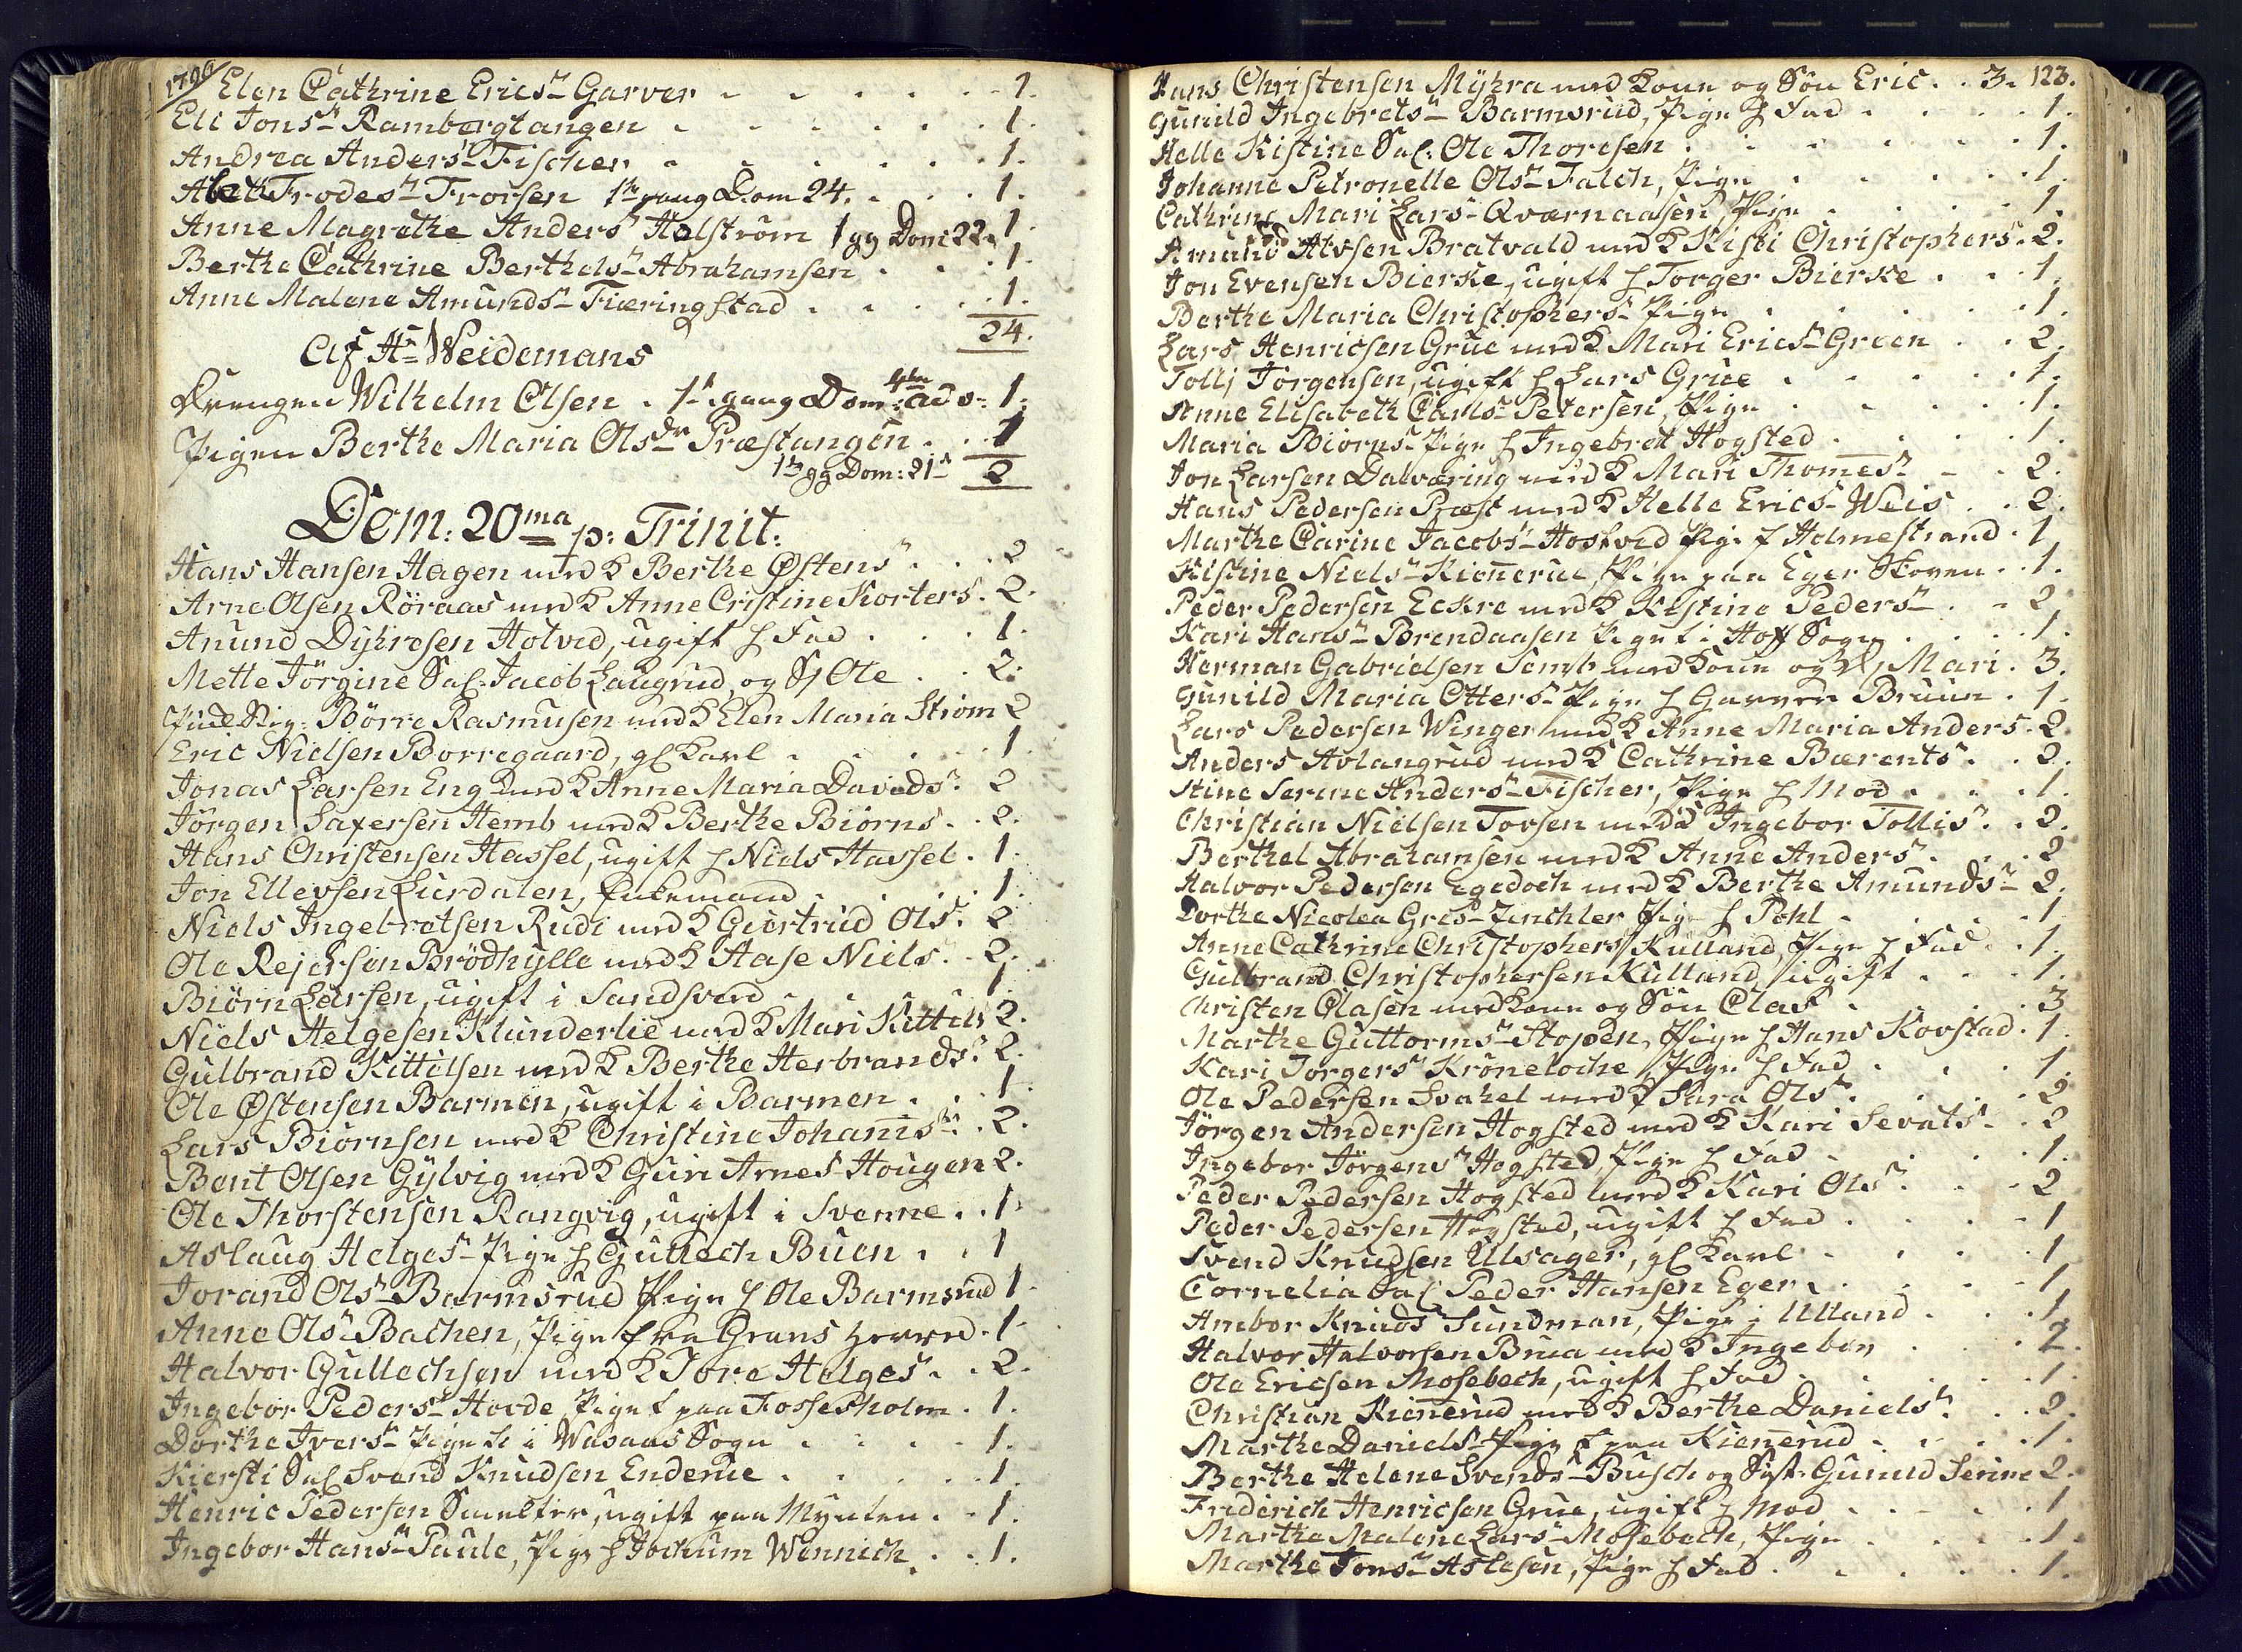 1790
Elen Cathrine Ericsn Garver - - - - - 1.
Eli Jonsn Rambergtangen - - - - - 1.
Andrea Andersn Fischer - - - - - 1.
Frodesn Frorsen 1te gang Dom 24. - - 1.
Anne Magrethe Andersn Holstrøm 1 gg Dom: 22. 1.
Berthe Cathrine Berthelsn Abrahamsen . . . 1.
Anne Malene Amundsn Fiæringstad . . . . 1.
24.
Af Hr Weidemans
Drengen Wilhelm Olsen . 1te gang Dom: 4de adv: 1.
Pigen Berthe Maria Olsdr Præstangen . . . 1
1te gg Dom: 21de 2
Dom: 20ma p: Trinit:
Hans Hansen Hagen med K Berthe Østensn . . . 2
Arne Olsen Röraas med K Anne Cristine Korters . 2.
Anund Dyhresen Hotved, ugift h Fad . . . 1.
Mette Jörgine Sal. Jacob Laugrud, og S. Ole . . 2.
Börre Rasmusen med K Elen Maria Strøm 2
Eric Nielsen Borregaard, gl Karl . . . . 1
Jonas Larsen Eng med K Anne Maria Davids: 2
Jörgen Safersen Hemb med K Berthe Biörns. . 2.
Hans Christensen Hassel, ugift h Niels Hassel . 1.
Jon Ellevsen Lurdalen, Enkemand . . . . 1.
Niels Ingebretsen Rudi med K Giertrud Ols. 2
Ole Rejersen Brödhylle med K Aase Niels. . 2.
Biörn Larsen, ugift i Sandsverd . . . . 1
Niels Helgesen Klunderlie med K Mari Kittels 2.
Gulbrand Kittilsen med K Berthe Herbrandsn. 2.
Ole Østensen Barmen, ugift i Barmen . . . 1
Lars Biörnsen med K Christine Johannsn . . 2.
Bent Olsen Gylvig med K Guri Arnes Hougen 2.
Ole Thorstensen Rangvig, ugift i Svenne . . 1.
Aslaug Helgesn Pige h Gullech Buen . . 1
Jorand Olsn Barmsrud Pige h Ole Barmsrud 1.
Anne Olsn Bachen, Pige fra Grans Herred . 1.
Halvor Gullechsen med K Tore Helgesn . . 2.
Ingebor Pedersn Hovde, Pige paa Fossesholm . 1.
Dorthe Iversn Pige i Wasaas Sogn . . . . 1.
Kiersti Sal Svend Knudsen Enderue . . . . 1.
Henric Pedersen Smelter, ugift paa Mynten . . 1.
Ingebor Hansn Paule, Pige h Jochum Wennich . . 1.
Hans Christensen Myhra med Kone og Sön Eric . . 3. 123.
Gunild Ingebretsn Barmsrud, Pige h Fad . . . . 1.
Helle Kistine Sal: Ole Thoresen . . . . . 1.
Johanne Petronelle Olsn Falch, Pige . . . . 1.
Cathrine Mari Larsn Qværnaasen, Pige . . . . 1.
Amund Atvsen Bratvald med K Kisti Christophers . 2.
Jon Evensen Bierke, ugift h Torger Bierke . . . 1.
Berthe Maria Christophersn Pige . . . . . 1.
Lars Henricsen Grue med K Mari Ericsn Green . . 2.
Tolli Jörgensen, ugift h Lars Grue . . . . 1.
Anne Elisabeth Carlsn Petersen, Pige . . . . 1.
Maria Biörnsn Pige h Ingebret Hogsted . . . . 1.
Jon Larsen Dalværing med K Mari Thomesn - . 2.
Hans Pedersen Præst med K Helle Ericsn Weis . . 2.
Marthe Carine Jacobsn Hostved Pige f Holmestrand . 1.
Kistine Nielsn Kiennerue, Pige paa Eger Skoven . . 1.
Peder Pedersen Eckre med K Kistine Pedersn . . 2.
Kari Hansn Brendaasen Pige i Hoff Sogn . . . . 1.
Herman Gabrielsen Semb med Kone og D. Mari . 3.
Gunild Maria Ottersn Pige h Garver Bruun . 1.
Lars Pedersen Winger med K Anne Maria Anders . 2.
Anders Aslangrud med K Cathrine Bærents . . 2.
Stine Serine Andersn Fischer, Pige h Mod . . . 1.
Christian Nielsen Torsen med K Ingebor Tollisn . . 2.
Berthel Abrahamsen med K Anne Andersn . . . 2.
Halvor Pedersen Egedoch med K Berthe Amundsn 2.
Dorthe Nicolea Gresn Zenchler Pige h Pohl . . . 1.
Anne Cathrine Christophersn Kulland, Pige h Fad . . 1.
Gulbrand Christophersen Kulland, ugift . . . 1.
Christen Clasen med Kone og Sön Clas . . . . 3
Marthe Guttormsn Hopen, Pige h Hans Kovstad . 1.
Kari Torgersn Kroneloche, Pige h Fad . . . . 1.
Ole Pedersen Svahel med K Sara Olsn . . . . 2
Jörgen Andersen Hogsted med K Kari Sevats . . 2
Ingebor Jörgensn Hogsted, Pige h Fad . . . . 1.
Peder Pedersen Hogsted med K Kari Olsn . . . 2
Peder Pedersen Hogsted, ugift h Fad . . . . 1
Svend Knudsen Ulsager, gl Karl . . . . 1
Cornelia Sal Peder Hansen Eger . . . . 1
Ambor Knuds Sundman, Pige i Ulland . . . 1.
Halvor Halvorsen Brua med K Ingebor . . . 2.
Ole Ericsen Mosebech, ugift h Fad . . . . 1.
Christian Kiennerud med K Berthe Danielsn . . 2.
Marthe Danielsn Pige paa Kiennerud . . . . 1.
Berthe Helene Svendsn Busch og Syst. Gunild Serine 2.
Friderich Henricsen Grue, ugift h Mod . . . . 1
Marthe Malene Larsn Mosebech, Pige . . . . 1.
Marthe Jonsn Aslesen, Pige h Fad . . . . 1.